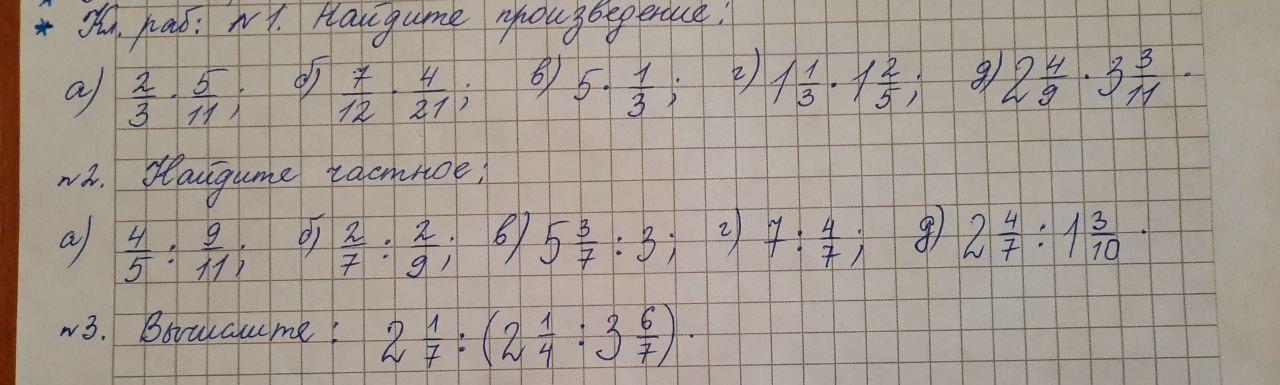 * Кл. раб: №1. Найдите произведение:
а) 2/3 · 5/11; б) 7/12 · 4/21; в) 5 · 1/3; г) 1 1/3 · 1 2/5; д) 2 4/9 · 3 3/11.
№2. Найдите частное:
а) 4/5 : 9/11; б) 2/7 : 2/9; в) 5 3/7 : 3; г) 7 : 4/7; д) 2 4/7 : 1 3/10.
№3. Вычислите: 2 1/7 : (2 1/4 : 3 6/7).